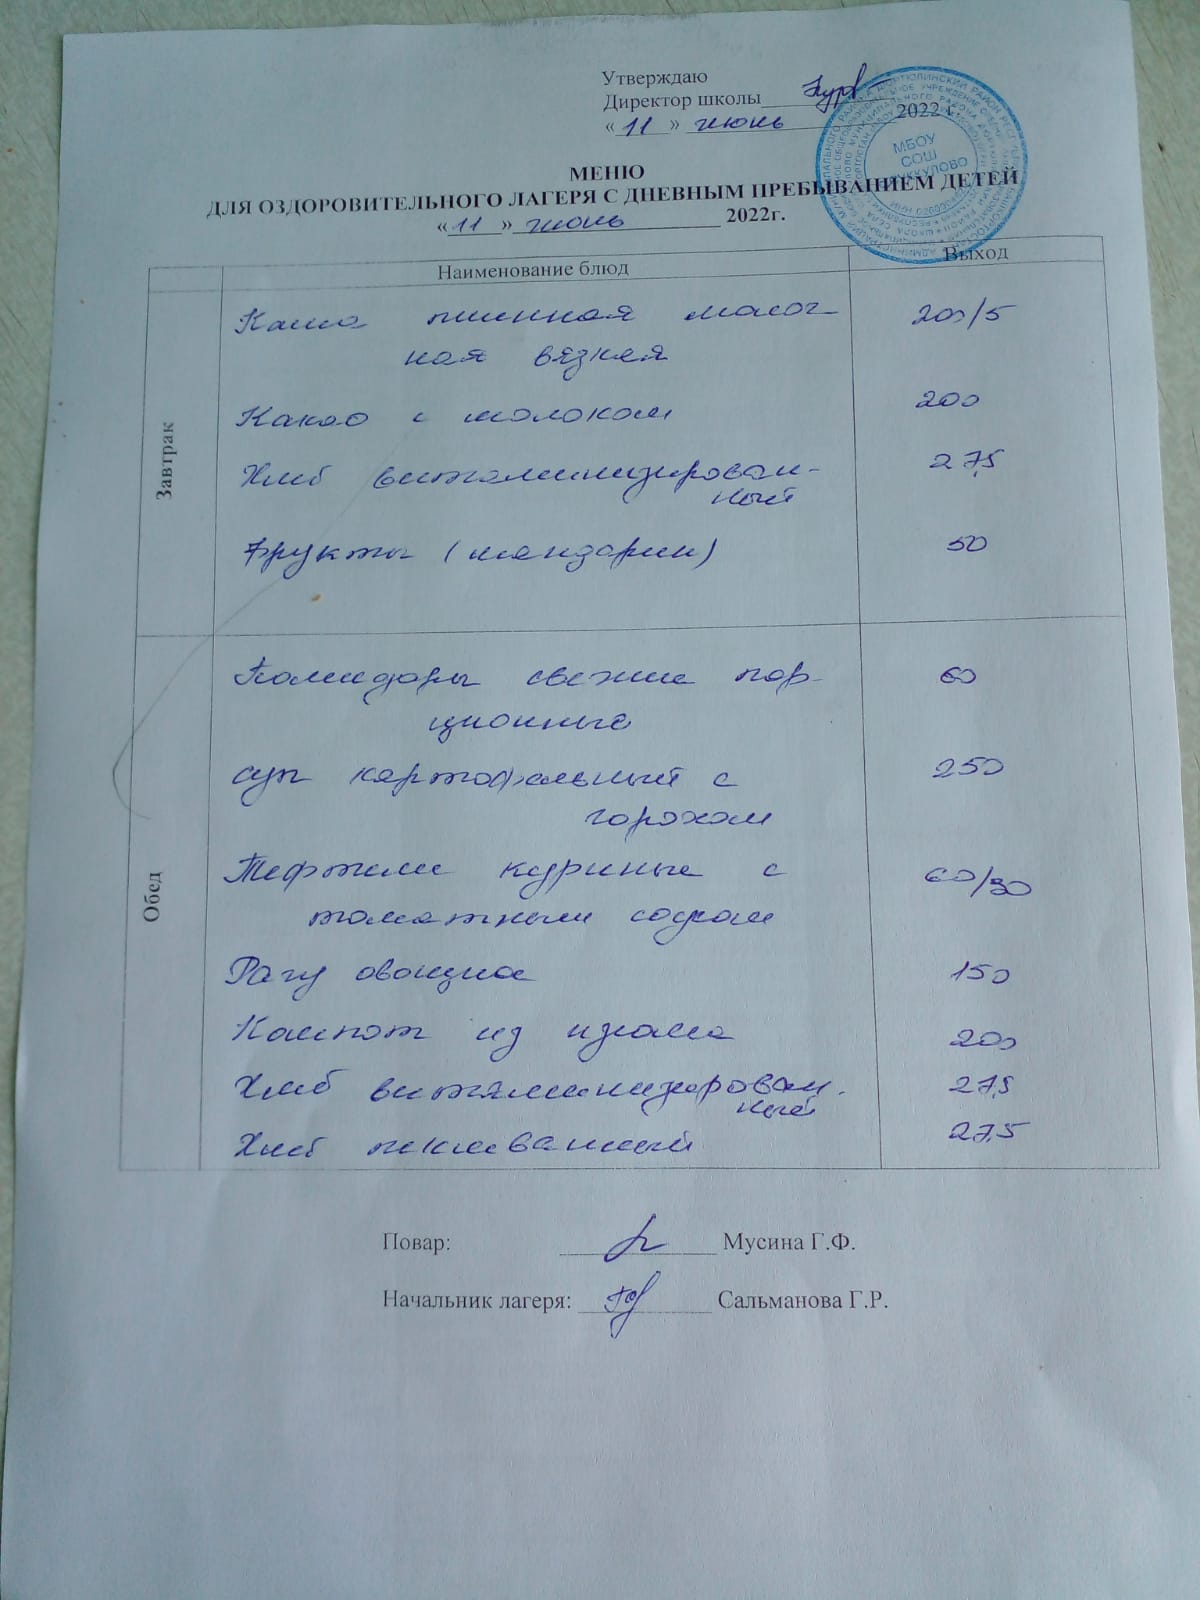 Утверждаю
Директор школы
« 11 » июнь 2022 г.
МБОУ
СОШ
МЕНЮ
ДЛЯ ОЗДОРОВИТЕЛЬНОГО ЛАГЕРЯ С ДНЕВНЫМ ПРЕБЫВАНИЕМ ДЕТЕЙ
« 11 » июнь 2022г.
Наименование блюд Выход
Завтрак
Каша пшенная молоч- 200/5
ная вязкая
Какао с молоком 200
Хлеб витаминизирован- 27,5
ный
Фрукты (мандарин) 50
Обед
Помидоры свежие пор- 60
ционные
суп картофельный с 250
горохом
Тефтели куриные с 60/30
томатным соусом
Рагу овощное 150
Компот из изюма 200
Хлеб витаминизирован- 27,5
ный
Хлеб пклеванный 27,5
Повар: Мусина Г.Ф.
Начальник лагеря: Сальманова Г.Р.